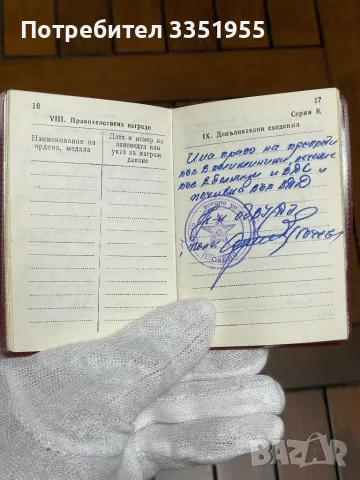 Потребител 3351955
16
VIII. Правителствени награди
Наименование на
ордена, медала
Дата и номер на
заповедта или
указ за награж-
даване
17
Серия К
IX. Допълнителни сведения
Има право на преглед
във В. поликлиники, лечение
във В. болници и ВДС и
почивка във
Н-к
полк.
ПЛОВДИВ
BAZAR